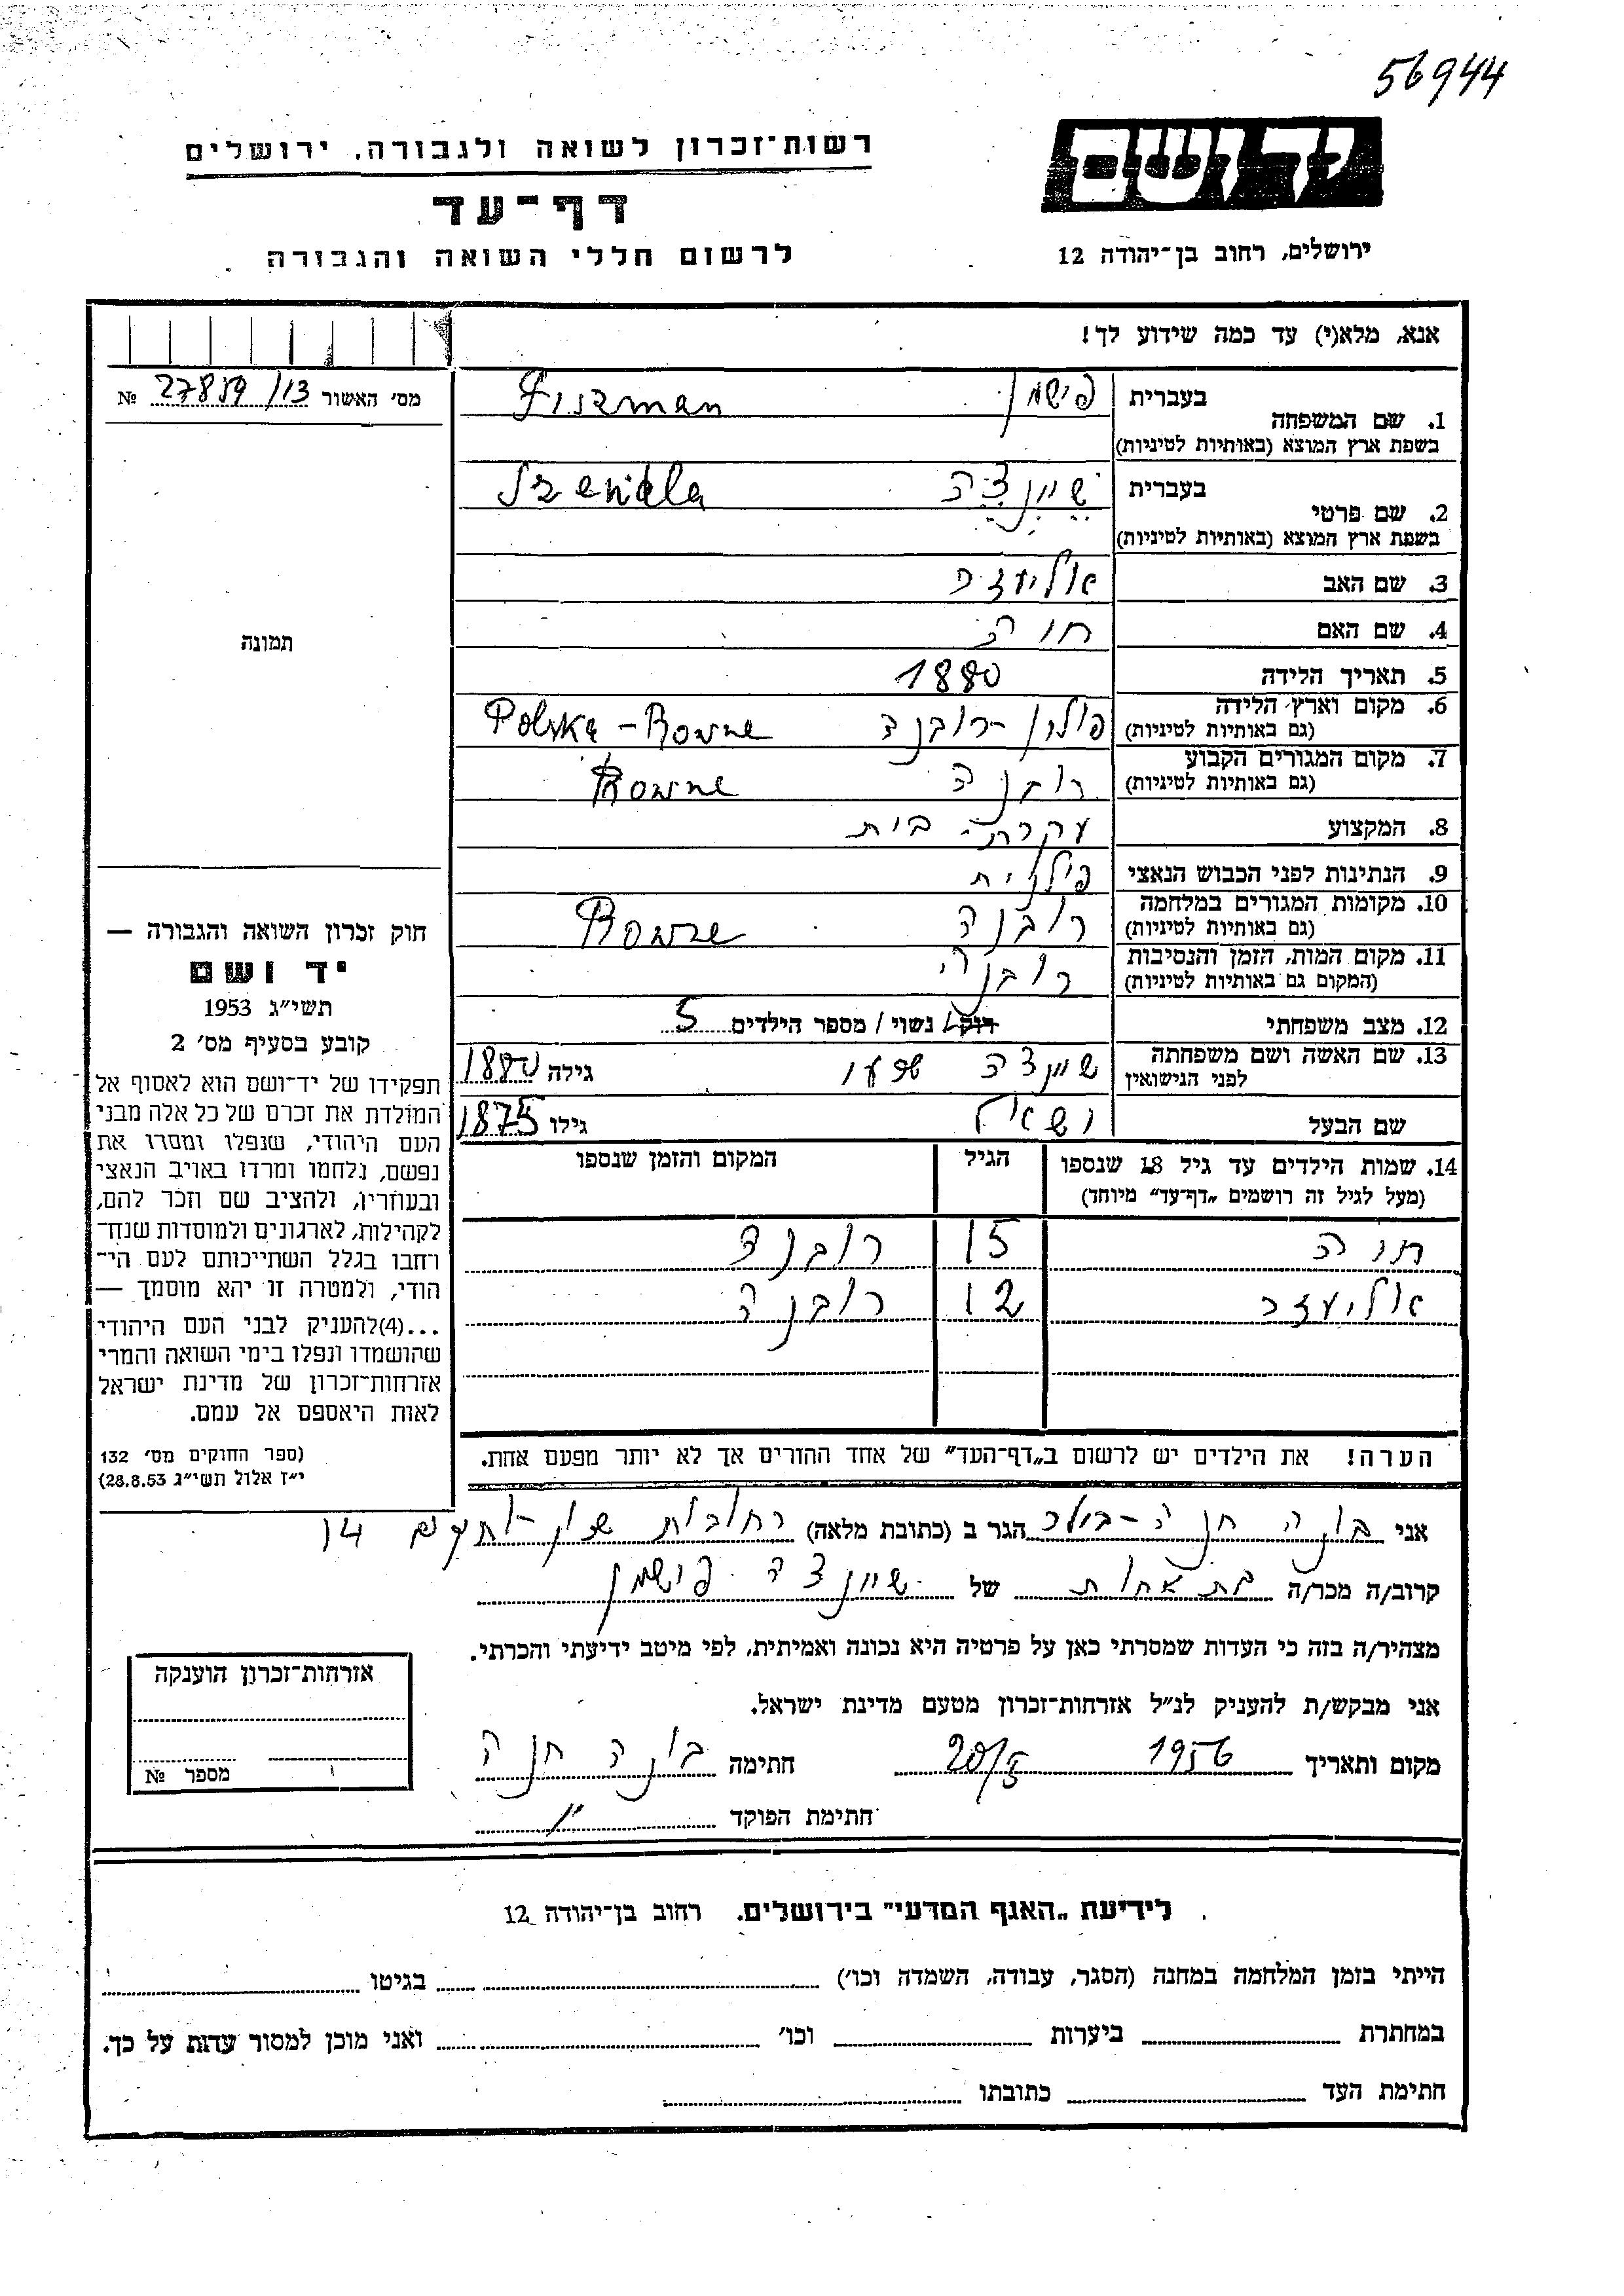 56944
יד ושם
רשות־זכרון לשואה ולגבורה, ירושלים
דף־עד
לרשום חללי השואה והגבורה
ירושלים, רחוב בן־יהודה 12
אנא, מלא(י) עד כמה שידוע לך!
מס׳ האשור 27859/13 №
תמונה
חוק זכרון השואה והגבורה —
יד ושם
תשי״ג 1953
קובע בסעיף מס׳ 2
תפקידו של יד־ושם הוא לאסוף אל
המולדת את זכרם של כל אלה מבני
העם היהודי, שנפלו ומסרו את
נפשם, נלחמו ומרדו באויב הנאצי
ובעוזריו, ולהציב שם וזכר להם,
לקהילות, לארגונים ולמוסדות שנח־
רחבו בגלל השתייכותם לעם הי־
הודי, ולמטרה זו יהא מוסמך —
...(4)להעניק לבני העם היהודי
שהושמדו ונפלו בימי השואה והמרי
אזרחות־זכרון של מדינת ישראל
לאות היאספם אל עמם.
(ספר החוקים מס׳ 132
י״ז אלול תשי״ג 28.8.53)
1. שם המשפחה בעברית פישמן Fiszman
בשפת ארץ המוצא (באותיות לטיניות)
2. שם פרטי בעברית שיינדה Szeindla
בשפת ארץ המוצא (באותיות לטיניות)
3. שם האב אליעזר
4. שם האם חוה
5. תאריך הלידה 1880
6. מקום וארץ הלידה (גם באותיות לטיניות) פולין - רובנה Polska - Rowne
7. מקום המגורים הקבוע (גם באותיות לטיניות) רובנה Rowne
8. המקצוע עקרת בית
9. הנתינות לפני הכבוש הנאצי פולנית
10. מקומות המגורים במלחמה (גם באותיות לטיניות) רובנה Rowne
11. מקום המות, הזמן והנסיבות (המקום גם באותיות לטיניות) רובנה
12. מצב משפחתי רוק / נשוי / מספר הילדים 5
13. שם האשה ושם משפחתה לפני הנישואין שיינדה גילה 1880
שם הבעל גילו 1875
14. שמות הילדים עד גיל 18 שנספו הגיל המקום והזמן שנספו
(מעל לגיל זה רושמים „דף־עד״ מיוחד)
חוה 15 רובנה
אליעזר 12 רובנה
הערה! את הילדים יש לרשום ב„דף־העד״ של אחד ההורים אך לא יותר מפעם אחת.
אני בונה חנה הגר ב (כתובת מלאה) רחובות 14
קרוב/ה מכר/ה בת אחות של שיינדה פישמן
מצהיר/ה בזה כי העדות שמסרתי כאן על פרטיה היא נכונה ואמיתית, לפי מיטב ידיעתי והכרתי.
אני מבקש/ת להעניק לנ״ל אזרחות־זכרון מטעם מדינת ישראל.
מקום ותאריך 1956 20/5 חתימה בונה חנה
חתימת הפוקד
אזרחות־זכרון הוענקה
מספר №
לידיעת „האגף המדעי״ בירושלים. רחוב בן־יהודה 12
הייתי בזמן המלחמה במחנה (הסגר, עבודה, השמדה וכו׳) בגיטו
במחתרת ביערות וכו׳ ואני מוכן למסור עדות על כך.
חתימת העד כתובתו